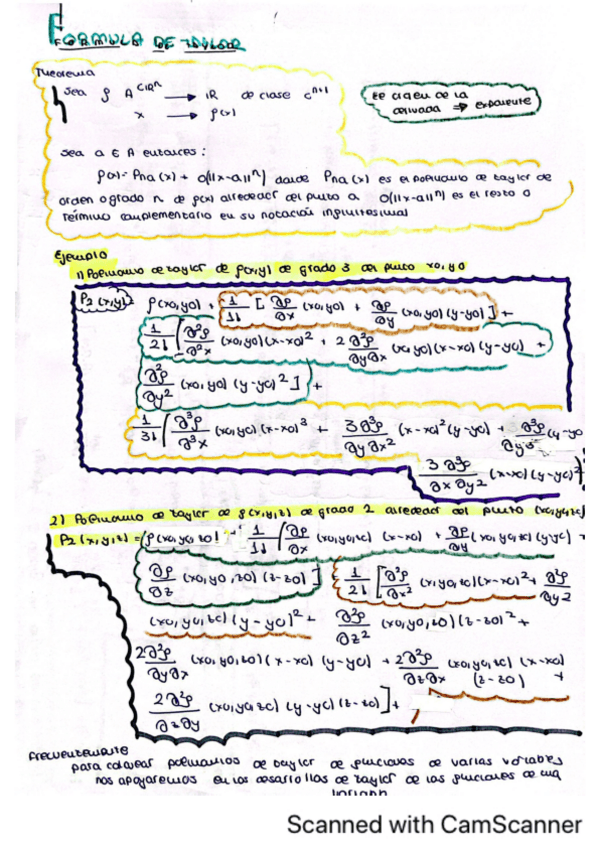 FORMULA DE TAYLOR
Theorema
Sea f A⊂ℝⁿ → ℝ de clase Cⁿ⁺¹
x → f(x)
El orden de la derivada ⇒ exponente
Sea a ∈ A entonces:
f(x) = Pn,a(x) + O(||x-a||ⁿ) donde Pn,a(x) es el polinomio de taylor de
orden o grado n de f(x) alrededor del punto a O(||x-a||ⁿ) es el resto o
término complementario en su notación infinitesimal
Ejemplo
1) Polinomio de taylor de f(x,y) de grado 3 del punto x0,y0
P2(x,y)= f(x0,y0) + 1/1! [∂f/∂x (x0,y0) + ∂f/∂y (x0,y0)(y-y0)] +
1/2! [∂²f/∂²x (x0,y0)(x-x0)² + 2∂²f/∂y∂x (x0,y0)(x-x0)(y-y0) +
∂²f/∂y² (x0,y0)(y-y0)²] +
1/3! [∂³f/∂³x (x0,y0)(x-x0)³ + 3∂³f/∂y∂x² (x-x0)²(y-y0) + ∂³f/∂y³ (y-y0
3∂³f/∂x∂y² (x-x0)(y-y0)²]
2) Polinomio de taylor de f(x,y,z) de grado 2 alrededor del punto (x0,y0,z0)
P2(x,y,z) = f(x0,y0,z0) + 1/1! [∂f/∂x (x0,y0,z0)(x-x0) + ∂f/∂y (x0,y0,z0)(y-y0) +
∂f/∂z (x0,y0,z0)(z-z0)] 1/2! [∂²f/∂x² (x,y0,z0)(x-x0)² + ∂²f/∂y²
(x0,y0,z0)(y-y0)² + ∂²f/∂z² (x0,y0,z0)(z-z0)² +
2∂²f/∂y∂x (x0,y0,z0)(x-x0)(y-y0) + 2∂²f/∂z∂x (x0,y0,z0)(x-x0)(z-z0) +
2∂²f/∂z∂y (x0,y0,z0)(y-y0)(z-z0)] +
Frecuentemente
para calcular polinomios de taylor de funciones de varias variables
nos apoyaremos en los desarrollos de taylor de las funciones de una
variable
Scanned with CamScanner